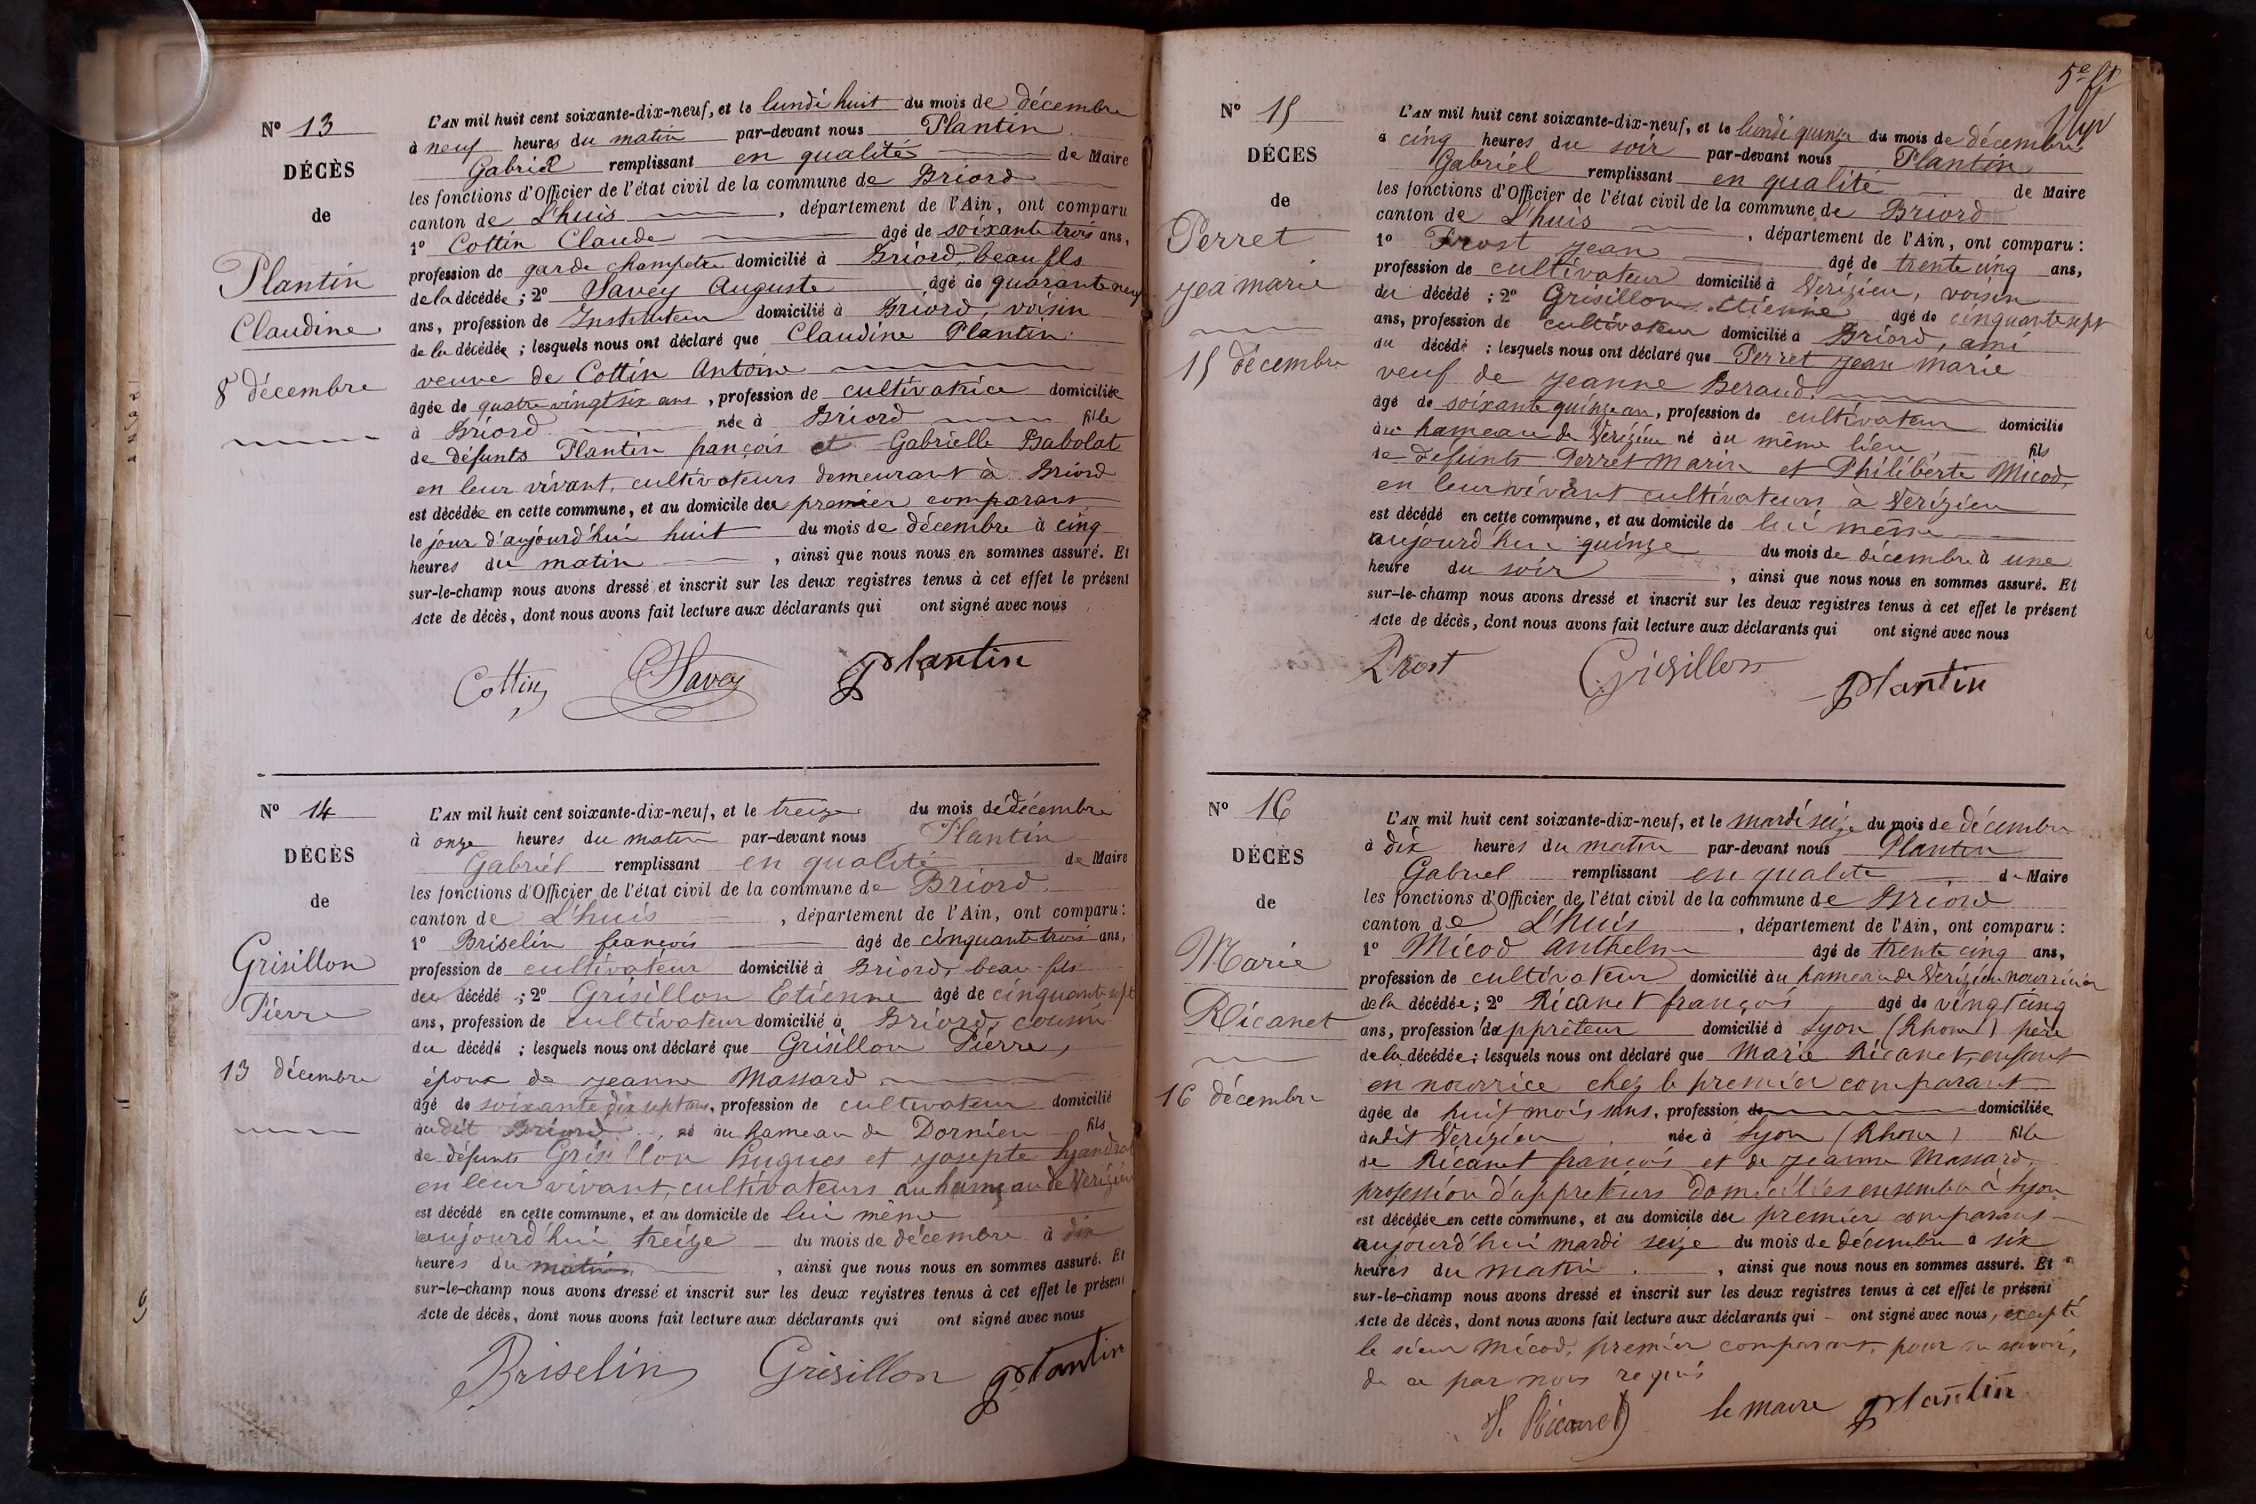 N° 13
DÉCÈS
de
Plantin
Claudine
8 décembre
L'AN mil huit cent soixante-dix-neuf, et le lundi huit du mois de décembre
à neuf heures du matin par-devant nous Plantin
Gabriel remplissant en qualités de Maire
les fonctions d'Officier de l'état civil de la commune de Briord
canton de L'huis, département de l'Ain, ont comparu
1° Cottin Claude âgé de soixante trois ans,
profession de garde champetre domicilié à Briord, beau fils
de la décédée ; 2° Savey Auguste âgé de quarante neuf
ans, profession de Instituteur domicilié à Briord, voisin
de la décédée ; lesquels nous ont déclaré que Claudine Plantin
veuve de Cottin Antoine
âgée de quatre vingt six ans, profession de cultivatrice domiciliée
à Briord née à Briord fille
de défunts Plantin françois et Gabrielle Babolat
en leur vivant, cultivateurs demeurant à Briord
est décédée en cette commune, et au domicile du premier comparant
le jour d'aujourd'hui huit du mois de décembre à cinq
heures du matin, ainsi que nous nous en sommes assuré. Et
sur-le-champ nous avons dressé et inscrit sur les deux registres tenus à cet effet le présent
Acte de décès, dont nous avons fait lecture aux déclarants qui ont signé avec nous
Cottin Savey Plantin
N° 14
DÉCÈS
de
Grisillon
Pierre
13 décembre
L'AN mil huit cent soixante-dix-neuf, et le treize du mois de décembre
à onze heures du matin par-devant nous Plantin
Gabriel remplissant en qualité de Maire
les fonctions d'Officier de l'état civil de la commune de Briord
canton de L'huis, département de l'Ain, ont comparu :
1° Briselin françois âgé de cinquante trois ans,
profession de cultivateur domicilié à Briord, beau-fils
du décédé ; 2° Grisillon Etienne âgé de cinquante sept
ans, profession de cultivateur domicilié à Briord, cousin
du décédé ; lesquels nous ont déclaré que Grisillon Pierre,
époux de Jeanne Massard
âgé de soixante dix sept ans, profession de cultivateur domicilié
audit Briord, né au hameau de Dornieu fils
de défunts Grisillon hugues et Josepte
en leur vivant, cultivateurs au hameau de Verizieu
est décédé en cette commune, et au domicile de lui même
aujourd'hui treize du mois de décembre à dix
heures du matin, ainsi que nous nous en sommes assuré. Et
sur-le-champ nous avons dressé et inscrit sur les deux registres tenus à cet effet le présent
Acte de décès, dont nous avons fait lecture aux déclarants qui ont signé avec nous
Briselin Grisillon Plantin
5e ft
N° 15
DÉCÈS
de
Perret
Jea marie
15 décembre
L'AN mil huit cent soixante-dix-neuf, et le lundi quinze du mois de décembre
à cinq heures du soir par-devant nous Plantin
Gabriel remplissant en qualité de Maire
les fonctions d'Officier de l'état civil de la commune de Briord
canton de L'huis, département de l'Ain, ont comparu :
1° Prost Jean âgé de trente cinq ans,
profession de cultivateur domicilié à Verizieu, voisin
du décédé ; 2° Grisillon Etienne âgé de cinquante sept
ans, profession de cultivateur domicilié à Briord, ami
du décédé ; lesquels nous ont déclaré que Perret Jean Marie
veuf de Jeanne Beraud
âgé de soixante quinze an, profession de cultivateur domicilié
au hameau de Verizieu né au même lieu fils
de defunts Perret Marin et Philiberte Micod,
en leur vivant cultivateurs à Verizieu
est décédé en cette commune, et au domicile de lui même
aujourd'hui quinze du mois de décembre à une
heure du soir, ainsi que nous nous en sommes assuré. Et
sur-le-champ nous avons dressé et inscrit sur les deux registres tenus à cet effet le présent
Acte de décès, dont nous avons fait lecture aux déclarants qui ont signé avec nous
Prost Grisillon Plantin
N° 16
DÉCÈS
de
Marie
Ricanet
16 décembre
L'AN mil huit cent soixante-dix-neuf, et le mardi seize du mois de décembre
à dix heures du matin par-devant nous Plantin
Gabriel remplissant en qualité de Maire
les fonctions d'Officier de l'état civil de la commune de Briord
canton de L'huis, département de l'Ain, ont comparu :
1° Micod Anthelme âgé de trente cinq ans,
profession de cultivateur domicilié au hameau de Verizieu nourricier
de la décédée ; 2° Ricanet françois âgé de vingt cinq
ans, profession d'appreteur domicilié à Lyon (Rhone) père
de la décédée ; lesquels nous ont déclaré que Marie Ricanet, enfant
en nourrice chez le premier comparant
âgée de huit mois ans, profession de domiciliée
audit Verizieu née à Lyon (Rhone) fille
de Ricanet françois et de Jeanne Massard,
profession d'appreteurs domiciliés ensemble à Lyon
est décédée en cette commune, et au domicile du premier comparant
aujourd'hui mardi seize du mois de décembre à six
heures du matin, ainsi que nous nous en sommes assuré. Et
sur-le-champ nous avons dressé et inscrit sur les deux registres tenus à cet effet le présent
Acte de décès, dont nous avons fait lecture aux déclarants qui ont signé avec nous, excepté
le sieur Micod, premier comparant, pour ne savoir,
de ce par nous requis
Ricanet le maire Plantin